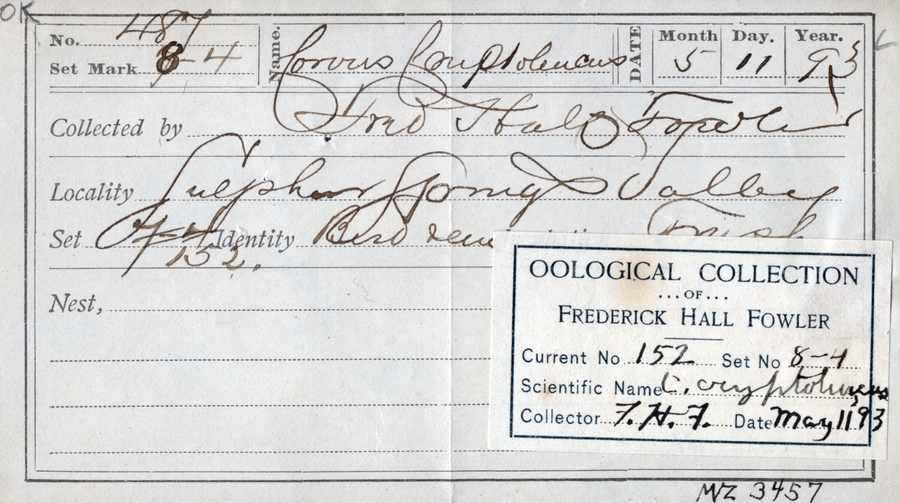 OK
No. 487
Set Mark 8-4
Name. Corvus Cryptoleucus
DATE Month 5 Day. 11 Year. 93
Collected by Fred Hall Fowler
Locality Sulphur Springs Valley
Set Identity Bird seen Fresh
152.
Nest,
OOLOGICAL COLLECTION
...OF...
FREDERICK HALL FOWLER
Current No 152 Set No 8-4
Scientific Name C. cryptoleucus
Collector F.H.F. Date May 11 93
MVZ 3457